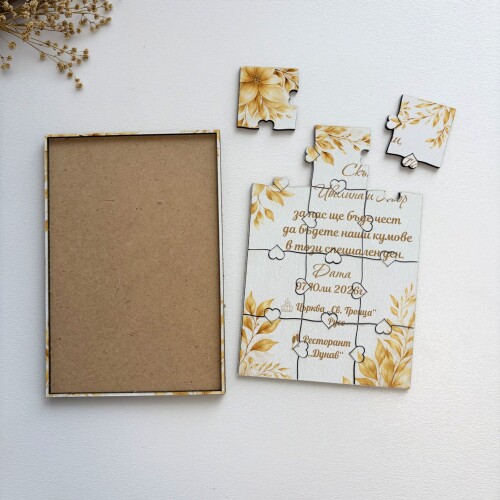 Ск
и,
за нас ще бъде чест
да бъдете наши кумове
в този специален ден.
Дата
07 Юли 2026г.
Църква „Св. Троица"
Русе
Ресторант
„Дунав"